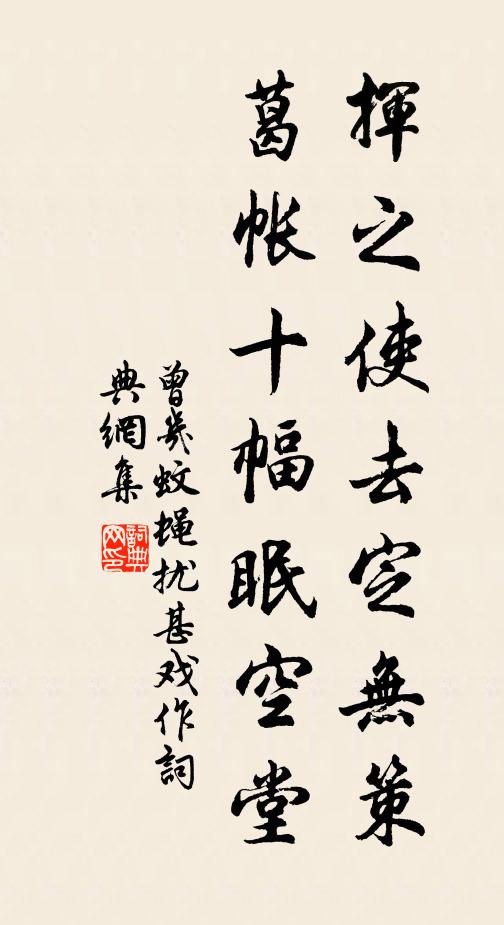 揮之使去定無策
葛帳十幅眠空堂
曾幾蚊蠅扰甚戏作詞
典網集
詞典網印